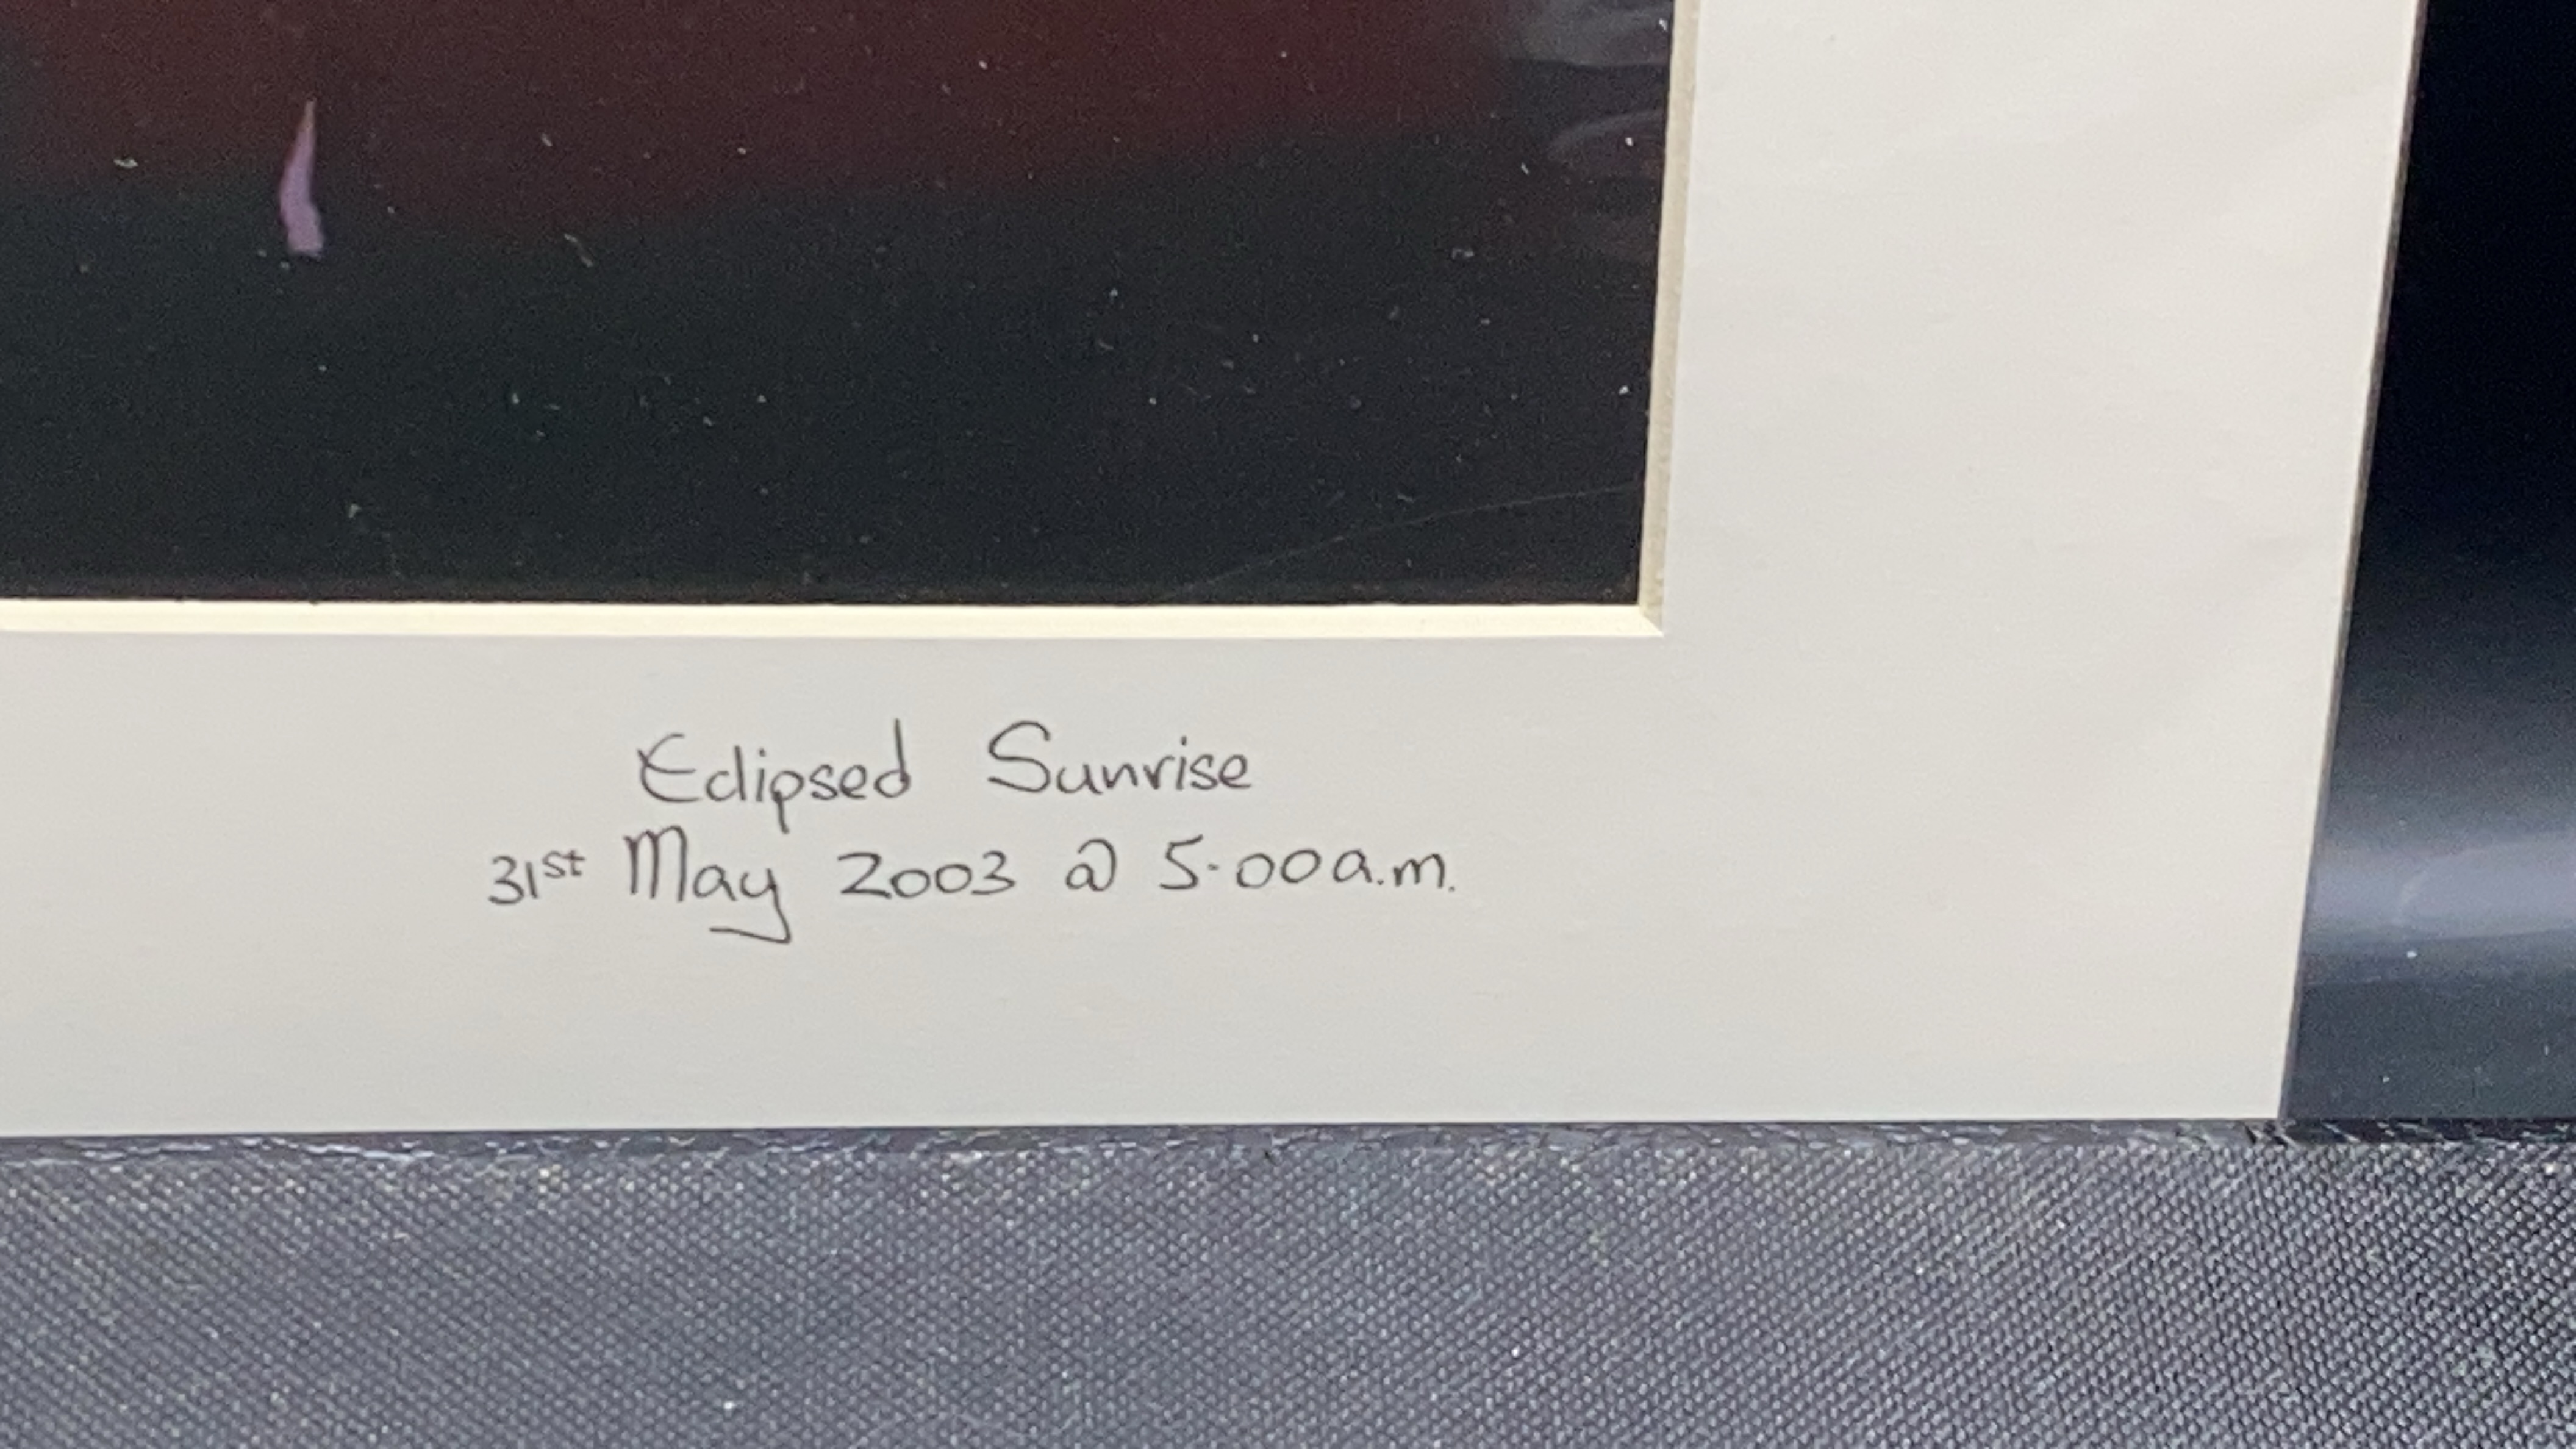 Eclipsed Sunrise
31st May 2003 @ 5.00a.m.